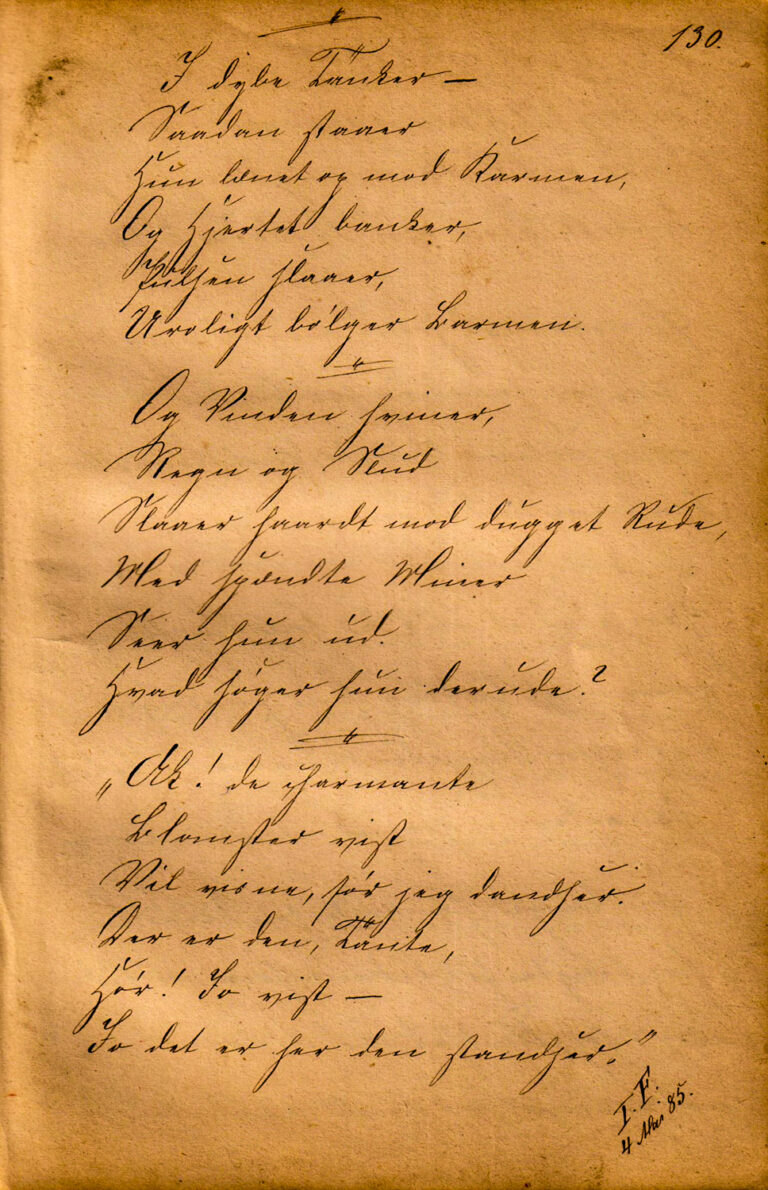 130.
I dybe Tanker —
Saadan staaer
Hun lænet op mod Karmen,
Og Hjertet banker,
Pulsen slaaer,
Uroligt bølger Barmen.
Og Vinden hviner,
Regn og Slud
Slaaer haardt mod dugget Rude,
Med spændte Miner
Seer hun ud.
Hvad søger hun derude?
„Ak! de charmante
Blomster vist
Vil visne, før jeg dandser.
Der er den, Tante,
Hør! Jo vist —
Jo det er her den standser."
I. F.
4 Mai 85.